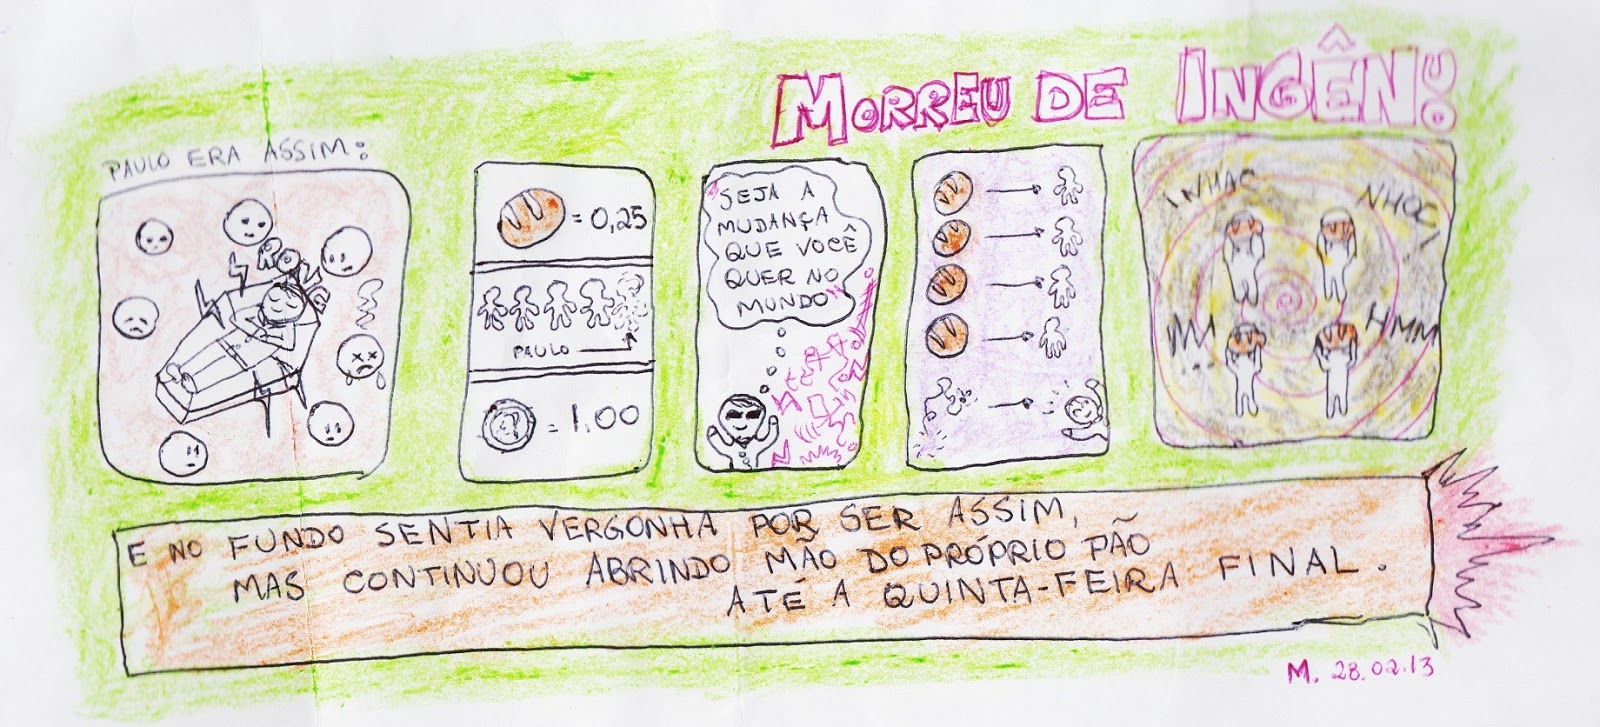 MORREU DE INGÊNUO
PAULO ERA ASSIM:
= 0,25
PAULO
= 1,00
SEJA A
MUDANÇA
QUE VOCÊ
QUER NO
MUNDO
INHAC
NHOC!
HMM
E NO FUNDO SENTIA VERGONHA POR SER ASSIM,
MAS CONTINUOU ABRINDO MÃO DO PRÓPRIO PÃO
ATÉ A QUINTA-FEIRA FINAL.
M. 28.02.13